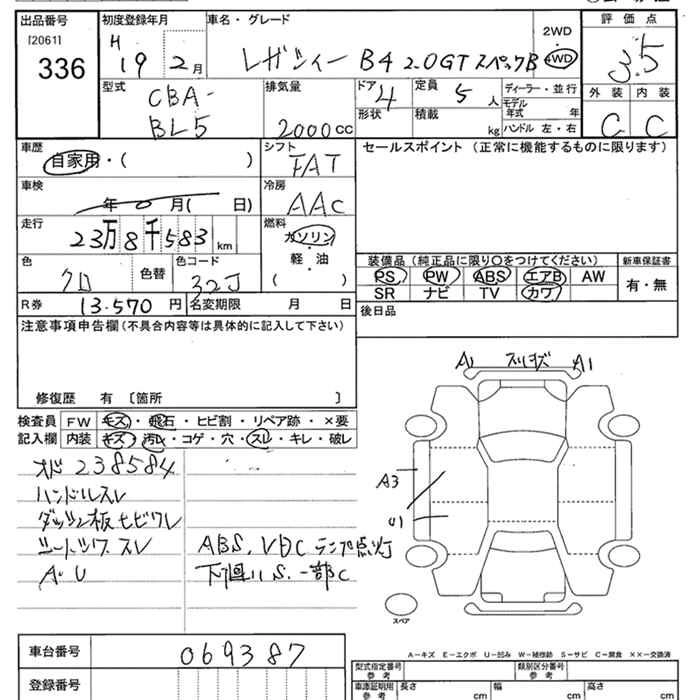 出品番号 初度登録年月 車名・グレード 評価点
[2061] H 2WD
336 19 2月 レガシィー B4 2.0GTスペックB 4WD 3.5
型式 排気量 ドア 4 定員 5人 ディーラー・並行 外装 内装
CBA- モデル年式 年
BL5 2000cc 形状 積載 kg ハンドル 左・右 C C
車歴 シフト セールスポイント (正常に機能するものに限ります)
自家用・( ) FAT
車検 冷房
年 0 月( 日) AAC
走行 燃料
23万8千583km ガソリン
軽・油
( )
装備品(純正品に限り○をつけてください) 新車保証書
色 色替 色コード PS PW ABS エアB AW 有・無
クロ 32J SR ナビ TV カワ
R券 13.570円 名変期限 月 日 後日品
注意事項申告欄(不具合内容等は具体的に記入して下さい)
修復歴 有 〔箇所 〕
検査員 FW キズ・飛石・ヒビ割・リペア跡・×要
記入欄 内装 キズ・汚レ・コゲ・穴・スレ・キレ・破レ
オド238584
ハンドルスレ
ダッシュ板ヒビワレ
シートシワ.スレ ABS、VDCランプ点灯
A・U 下廻りS.一部C
A1 スリキズ A1
A3
U1
スペア
A-キズ E-エクボ U-凹み W-補修跡 S-サビ C-腐食 ××-交換済
車台番号 069387
登録番号
型式指定番号 参考 類別区分番号 参考
車庫証明用 参考 長さ cm 幅 cm 高さ cm